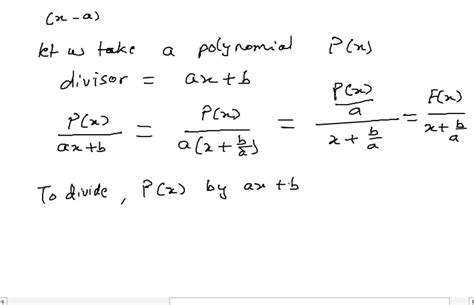 (x - a)
let us take a polynomial P(x)
divisor = ax + b
P(x)/(ax+b) = P(x)/(a(x + b/a)) = (P(x)/a)/(x + b/a) = F(x)/(x + b/a)
To divide, P(x) by ax + b